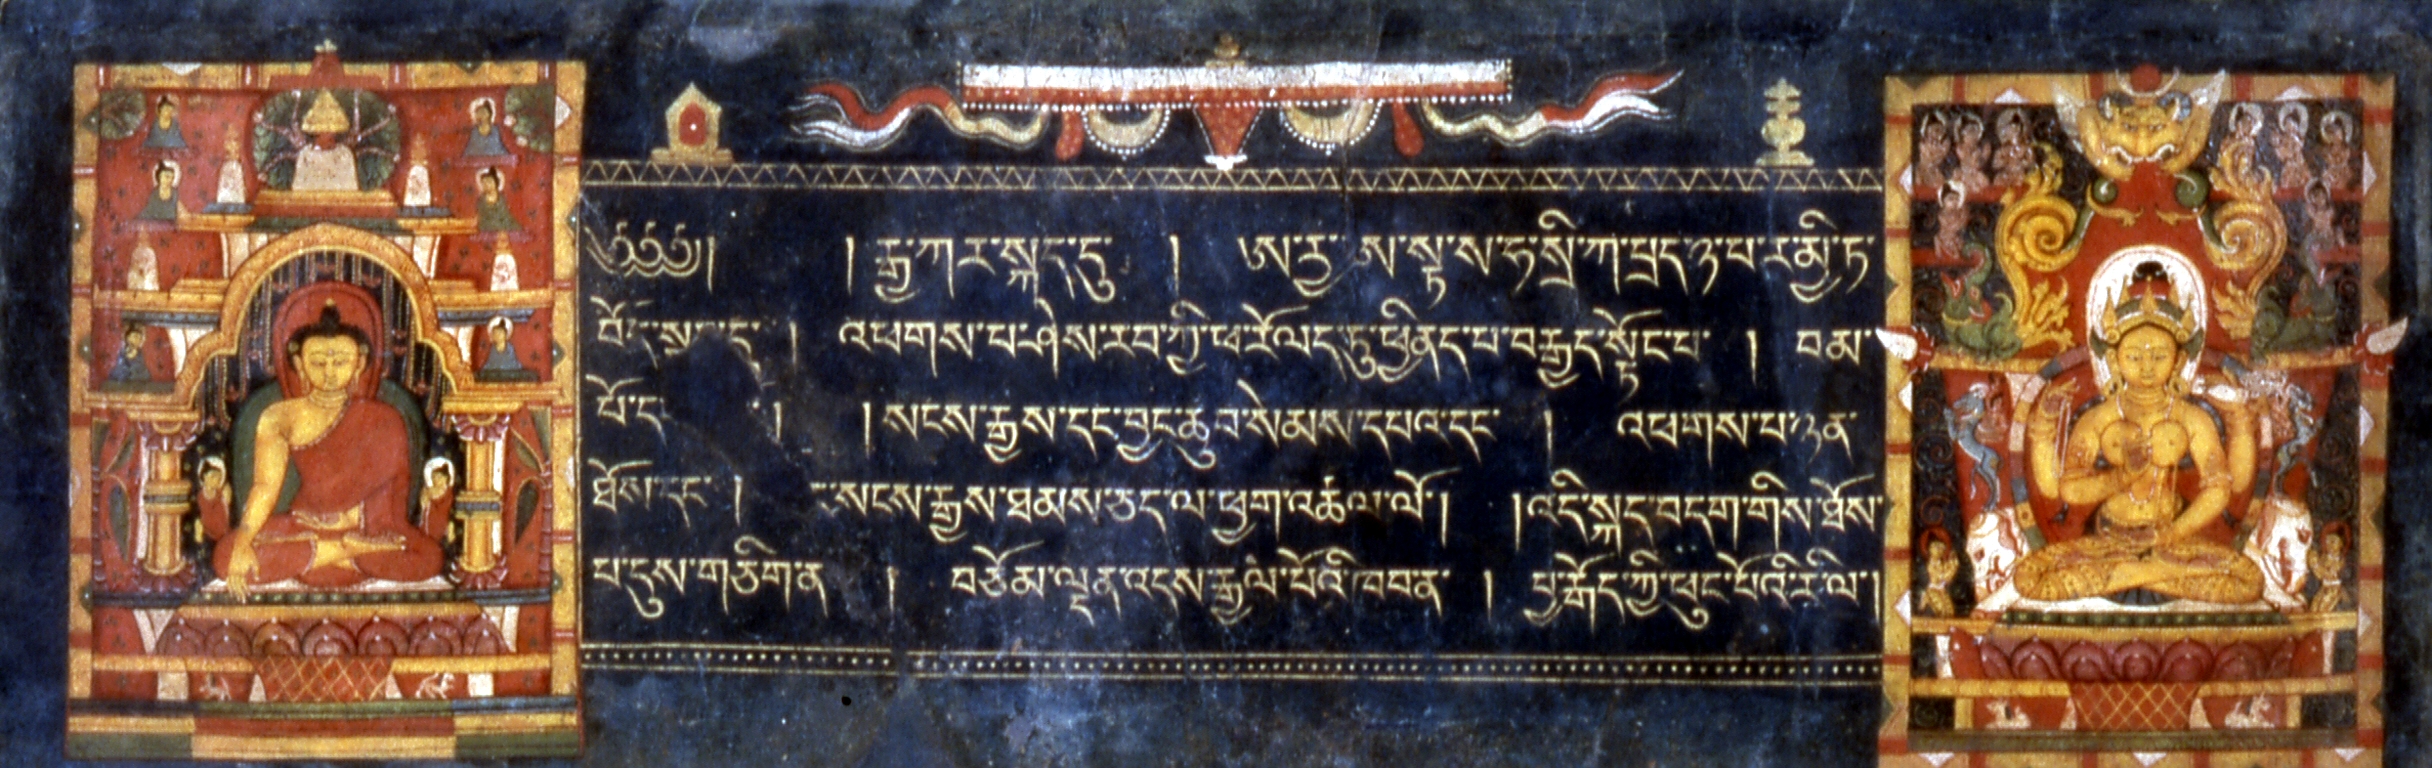 ༄༅༅། །རྒྱ་ཀར་སྐད་དུ། ཨརྱ་ཨ་སྟ་ས་ཧ་སྲི་ཀ་པྲད་ཉ་པ་ར་མྱི་ཏ་
བོད་སྐད་དུ། འཕགས་པ་ཤེས་རབ་ཀྱི་ཕ་རོལ་དུ་ཕྱིནད་པ་བརྒྱད་སྟོང་པ། བམ་
པོ་ད། །སངས་རྒྱས་དང་བྱང་ཆུབ་སེམས་དཔའ་དང་། འཕགས་པ་ཉན་
ཐོས་དང་། སངས་རྒྱས་ཐམས་ཅད་ལ་ཕྱག་འཚལ་ལོ། །འདི་སྐད་བདག་གིས་ཐོས་
པ་དུས་གཅིག་ན། བཅོམ་ལྡན་འདས་རྒྱལ་པོའི་ཁབན་། བྱ་རྒོད་ཀྱི་ཕུང་པོའི་རི་ལ།